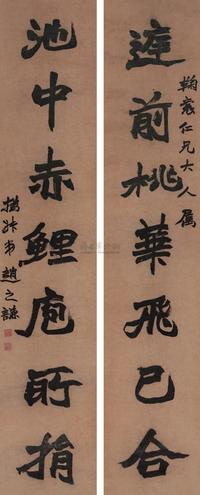 鞠裳仁兄大人屬
庭前桃華飛已合
池中赤鯉庖所捐
撝叔弟趙之謙